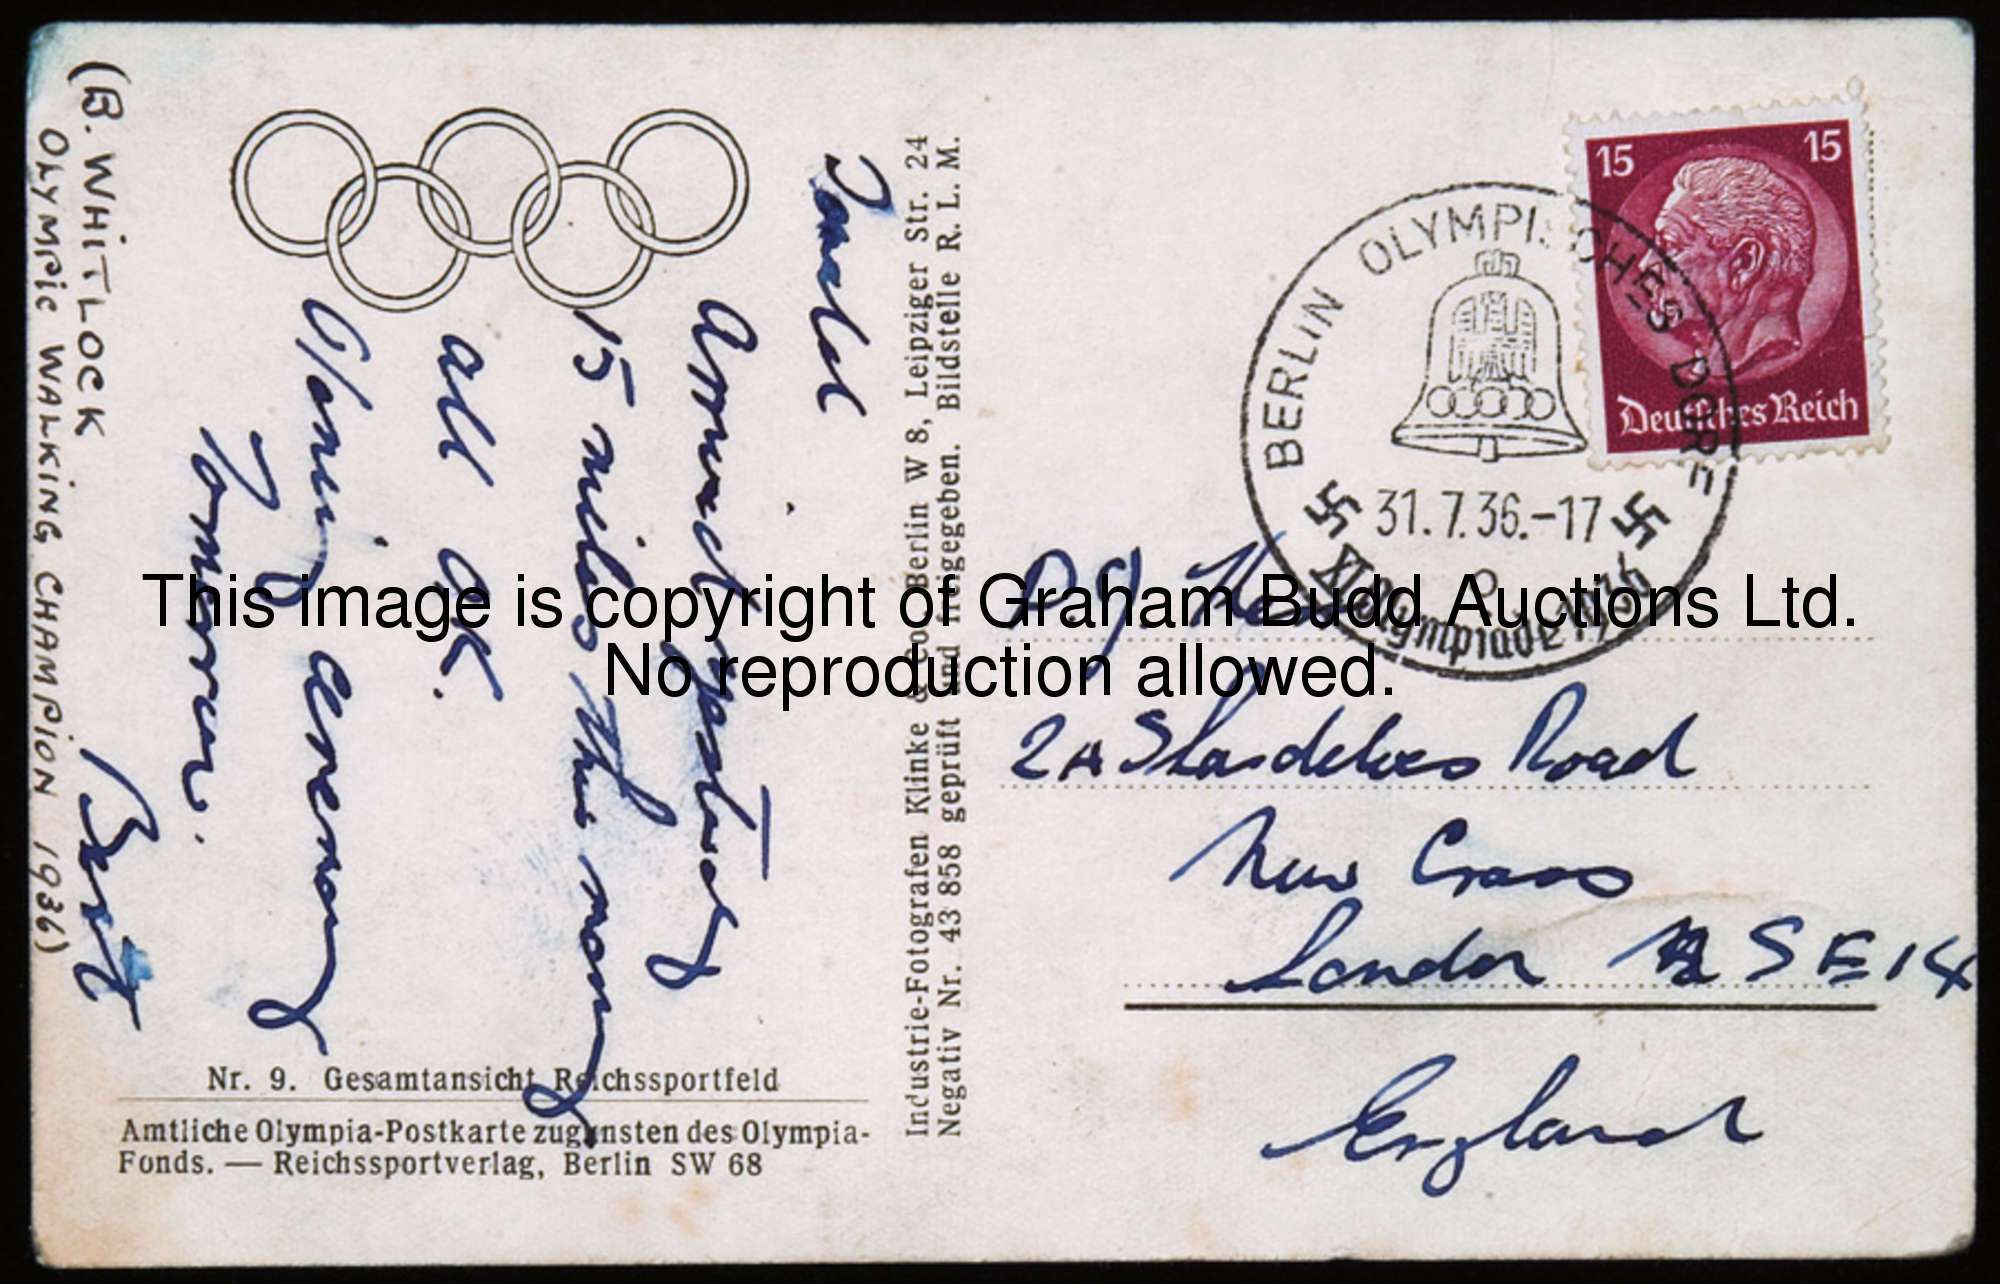 (B. WHITLOCK
OLYMPIC WALKING CHAMPION 1936)
Donald
Arrived yesterday
15 miles this morning
all OK.
Opening ceremony
Tomorrow.
Bert
Nr. 9. Gesamtansicht Reichssportfeld
Amtliche Olympia-Postkarte zugunsten des Olympia-
Fonds. — Reichssportverlag, Berlin SW 68
Industrie-Fotografen Klinke & Co Berlin W 8, Leipziger Str. 24
Negativ Nr. 43 858 geprüft und freigegeben. Bildstelle R. L. M.
15 15
Deutsches Reich
BERLIN OLYMPISCHES DORF
31.7.36.-17
o
XI. Olympiade 1936
D. J.
2A Shardeloes Road
New Cross
London SE14
England
This image is copyright of Graham Budd Auctions Ltd.
No reproduction allowed.